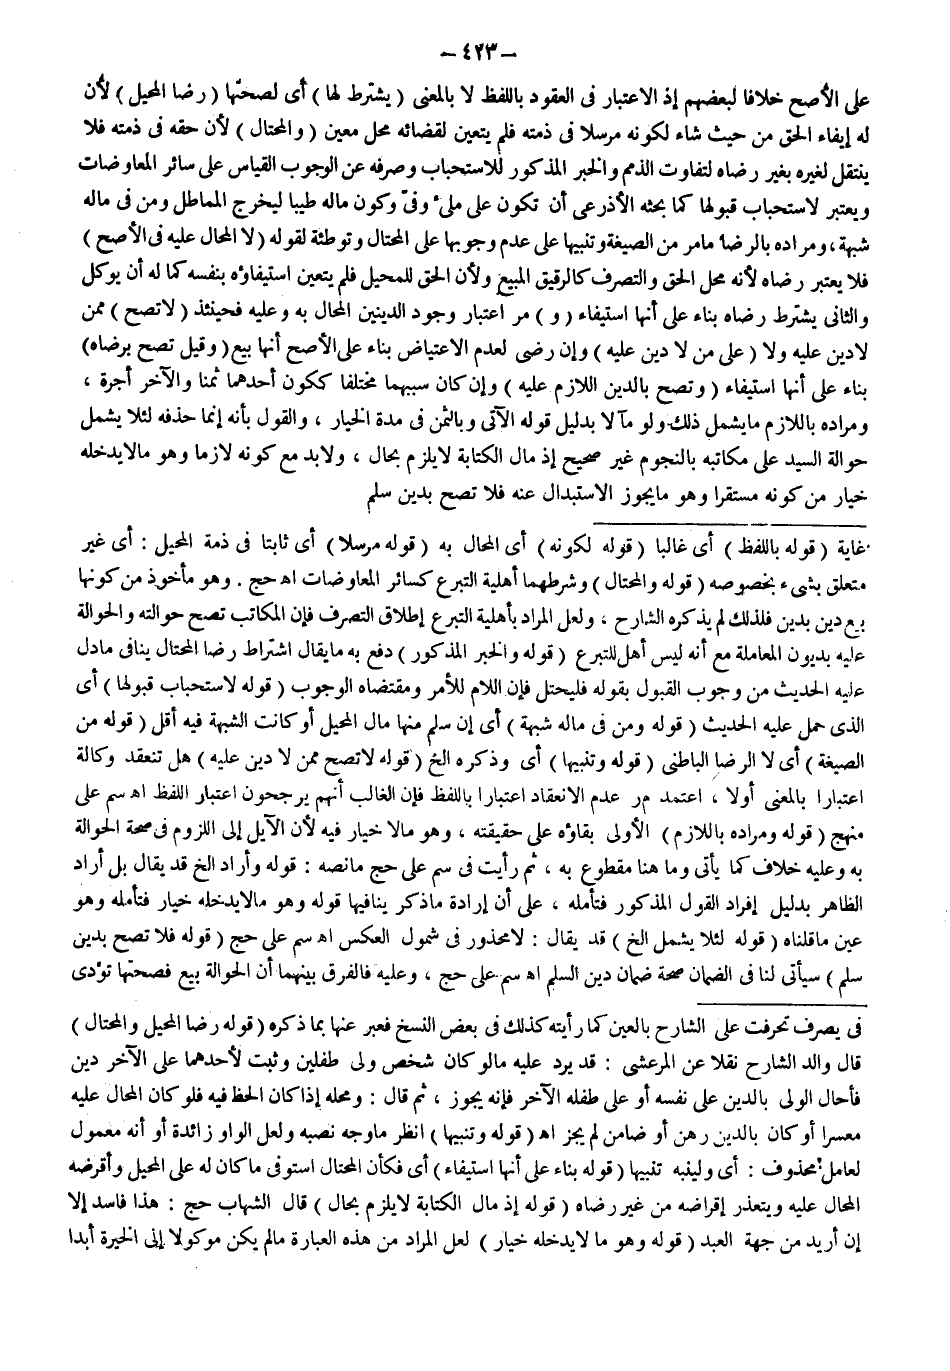 – ٤٢٣ –
على الأصح خلافا لبعضهم إذ الاعتبار فى العقود باللفظ لا بالمعنى ( يشترط لها ) أى لصحتها ( رضا المحيل ) لأن
له إيفاء الحق من حيث شاء لكونه مرسلا فى ذمته فلم يتعين لقضائه محل معين ( والمحتال ) لأن حقه فى ذمته فلا
ينتقل لغيره بغير رضاه لتفاوت الذمم والخبر المذكور للاستحباب وصرفه عن الوجوب القياس على سائر المعاوضات
ويعتبر لاستحباب قبولها كما بحثه الأذرعى أن تكون على ملىء وفىّ وكون ماله طيبا ليخرج المماطل ومن فى ماله
شبهة ، ومراده بالرضا مامر من الصيغة وتنبيها على عدم وجوبها على المحتال وتوطئة لقوله ( لا المحال عليه فى الأصح )
فلا يعتبر رضاه لأنه محل الحق والتصرف كالرقيق المبيع ولأن الحق للمحيل فلم يتعين استيفاؤه بنفسه كما له أن يوكل
والثانى يشترط رضاه بناء على أنها استيفاء ( و ) مر اعتبار وجود الدينين المحال به وعليه فحينئذ ( لاتصح ) ممن
لادين عليه ولا ( على من لا دين عليه ) وإن رضى لعدم الاعتياض بناء على الأصح أنها بيع ( وقيل تصح برضاه)
بناء على أنها استيفاء ( وتصح بالدين اللازم عليه ) وإن كان سببهما مختلفا ككون أحدهما ثمنا والآخر أجرة ،
ومراده باللازم مايشمل ذلك ولو مآلا بدليل قوله الآتى وبالثمن فى مدة الخيار ، والقول بأنه إنما حذفه لئلا يشمل
حوالة السيد على مكاتبه بالنجوم غير صحيح إذ مال الكتابة لايلزم بحال ، ولابد مع كونه لازما وهو مالايدخله
خيار من كونه مستقرا وهو مايجوز الاستبدال عنه فلا تصح بدين سلم
غاية ( قوله باللفظ ) أى غالبا ( قوله لكونه ) أى المحال به ( قوله مرسلا ) أى ثابتا فى ذمة المحيل : أى غير
متعلق بشىء بخصوصه ( قوله والمحتال ) وشرطهما أهلية التبرع كسائر المعاوضات اه حج . وهو مأخوذ من كونها
بيع دين بدين فلذلك لم يذكره الشارح ، ولعل المراد بأهلية التبرع إطلاق التصرف فإن المكاتب تصح حوالته والحوالة
عليه بديون المعاملة مع أنه ليس أهل للتبرع ( قوله والخبر المذكور ) دفع به مايقال اشتراط رضا المحتال ينافى مادل
عليه الحديث من وجوب القبول بقوله فليحتل فإن اللام للأمر ومقتضاه الوجوب ( قوله لاستحباب قبولها ) أى
الذى حمل عليه الحديث ( قوله ومن فى ماله شبهة ) أى إن سلم منها مال المحيل أو كانت الشبهة فيه أقل ( قوله من
الصيغة ) أى لا الرضا الباطنى ( قوله وتنبيها ) أى وذكره الخ ( قوله لاتصح ممن لا دين عليه ) هل تنعقد وكالة
اعتبارا بالمعنى أولا ، اعتمد مر عدم الانعقاد اعتبارا باللفظ فإن الغالب أنهم يرجحون اعتبار اللفظ اه سم على
منهج ( قوله ومراده باللازم ) الأولى بقاؤه على حقيقته ، وهو مالا خيار فيه لأن الآيل إلى اللزوم فى صحة الحوالة
به وعليه خلاف كما يأتى وما هنا مقطوع به ، ثم رأيت فى سم على حج مانصه : قوله وأراد الخ قد يقال بل أراد
الظاهر بدليل إفراد القول المذكور فتأمله ، على أن إرادة ماذكر ينافيها قوله وهو مالايدخله خيار فتأمله وهو
عين ماقلناه ( قوله لئلا يشمل الخ ) قد يقال : لامحذور فى شمول العكس اه سم على حج ( قوله فلا تصح بدين
سلم ) سيأتى لنا فى الضمان صحة ضمان دين السلم اه سم على حج ، وعليه فالفرق بينهما أن الحوالة بيع فصحتها تؤدى
فى يصرف تحرفت على الشارح بالعين كما رأيته كذلك فى بعض النسخ فعبر عنها بما ذكره ( قوله رضا المحيل والمحتال )
قال والد الشارح نقلا عن المرعشى : قد يرد عليه مالو كان شخص ولى طفلين وثبت لأحدهما على الآخر دين
فأحال الولى بالدين على نفسه أو على طفله الآخر فإنه يجوز ، ثم قال : ومحله إذا كان الحظ فيه فلو كان المحال عليه
معسرا أو كان بالدين رهن أو ضامن لم يجز اه ( قوله وتنبيها ) انظر ماوجه نصبه ولعل الواو زائدة أو أنه معمول
لعامل محذوف : أى ولينبه تنبيها ( قوله بناء على أنها استيفاء ) أى فكأن المحتال استوفى ماكان له على المحيل وأقرضه
المحال عليه ويتعذر إقراضه من غير رضاه ( قوله إذ مال الكتابة لايلزم بحال ) قال الشهاب حج : هذا فاسد إلا
إن أريد من جهة العبد ( قوله وهو ما لايدخله خيار ) لعل المراد من هذه العبارة مالم يكن موكولا إلى الخيرة أبدا